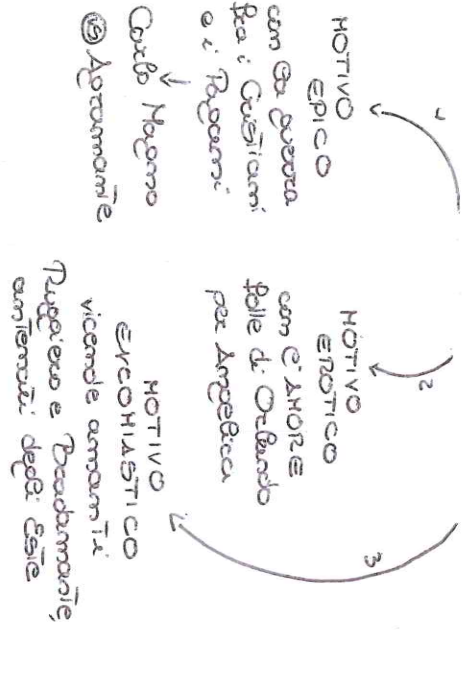 1
MOTIVO
EPICO
con la guerra
fra i Cristiani
e i Pagani
Carlo Magno
vs Agramante
2
MOTIVO
EROTICO
con l'AMORE
folle di Orlando
per Angelica
3
MOTIVO
ENCOMIASTICO
vicende amanti
Ruggiero e Bradamante,
antenati degli Este